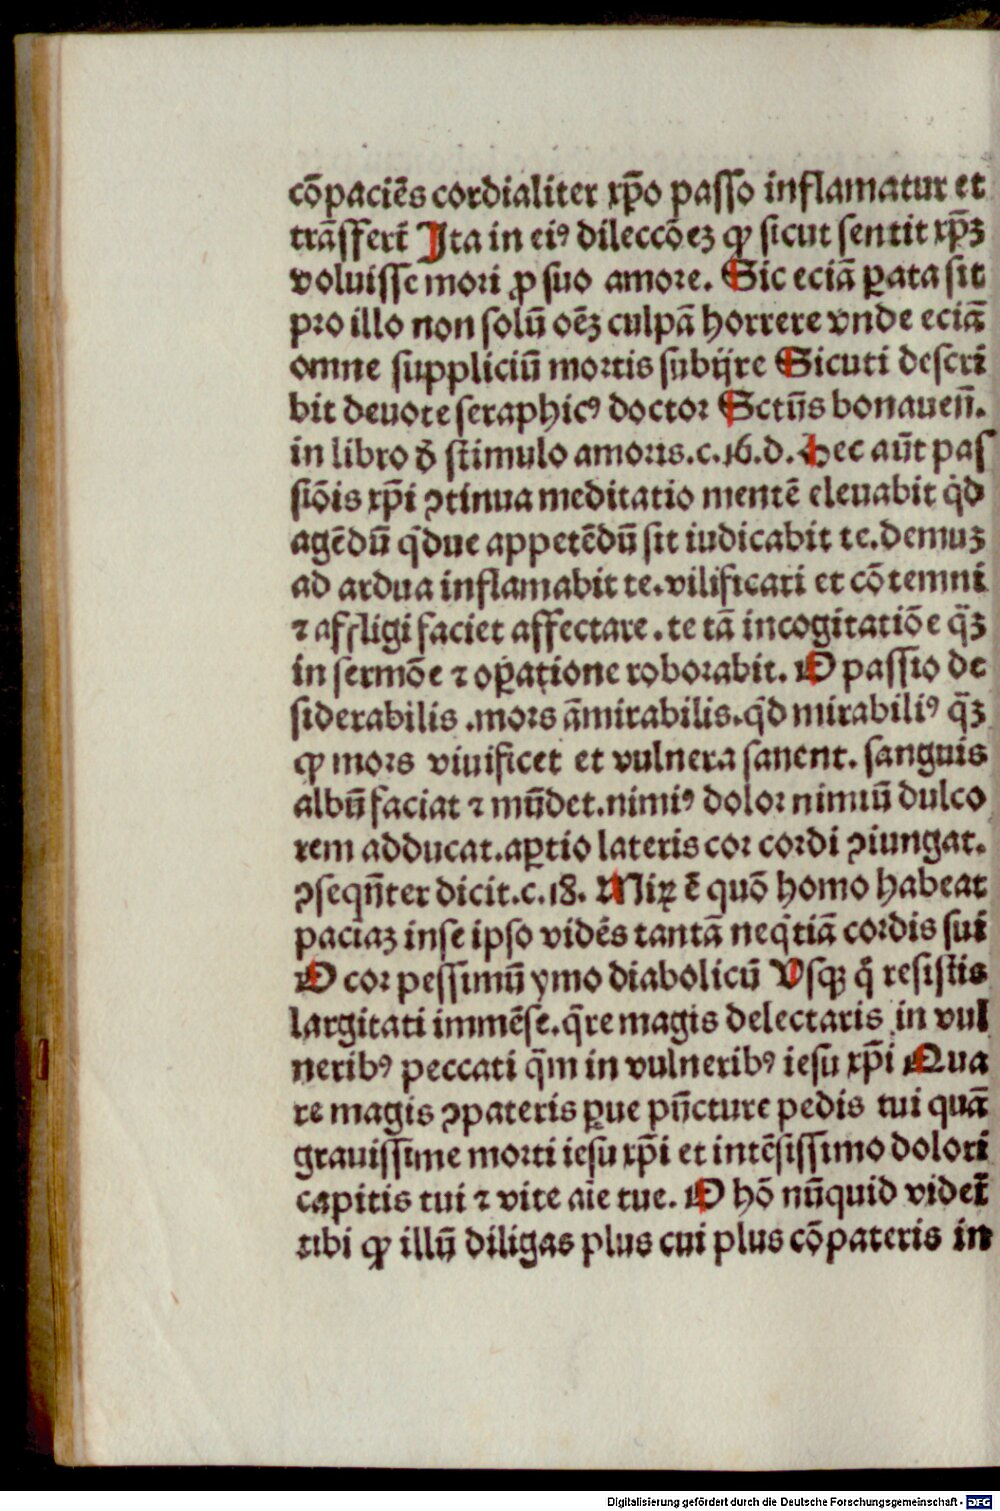 cōpaciēs cordialiter xp̄o passo inflamatur et
trāsfert̄ Ita in eiꝰ dileccōeꝫ ꝙ sicut sentit xp̄ꝫ
voluisse mori ꝓ suo amore. Sic eciā ꝑata sit
pro illo non solū oēꝫ culpā horrere vnde eciā
omne suppliciū mortis subijre Sicuti descri
bit deuote seraphicꝰ doctor Sctūs bonauen̄.
in libro đ stimulo amoris.c.16.d. Hec aūt pas
siōis xp̄i ꝯtinua meditatio mentē eleuabit qd̄
agēdū qd̄ue appetēdū sit iudicabit te.demuꝫ
ad ardua inflamabit te.vilificari et cōtemni
⁊ affligi faciet affectare.te tā incogitatiōe q̄ꝫ
in sermōe ⁊ oꝑatione roborabit. O passio de
siderabilis .mors āmirabilis.qd̄ mirabiliꝰ q̄ꝫ
ꝙ mors viuificet et vulnera sanent. sanguis
albū faciat ⁊ mūdet.nimiꝰ dolor nimiū dulco
rem adducat.aꝑtio lateris cor cordi ꝯiungat.
ꝯseqn̄ter dicit.c.18. Miꝝ ē quō homo habeat
paciaꝫ inse ipso vidēs tantā neq̄tiā cordis sui
O cor pessimū ymo diabolicū Vsqꝫ q̊ resistis
largitati immēse.q̄re magis delectaris in vul
neribꝰ peccati q̄m in vulneribꝰ iesu xp̄i Qua
re magis ꝯpateris ꝑue pūcture pedis tui quā
grauissime morti iesu xp̄i et intēsissimo dolori
capitis tui ⁊ vite aīe tue. O hō nūquid videt̄
tibi ꝙ illū diligas plus cui plus cōpateris in
Digitalisierung gefördert durch die Deutsche Forschungsgemeinschaft - DFG